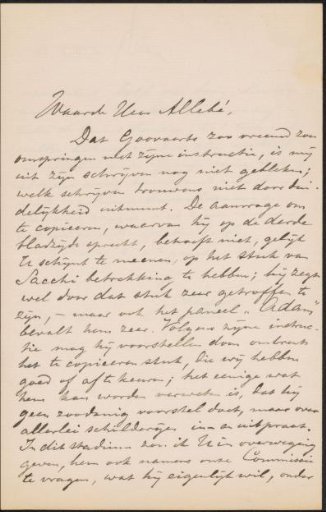 Waarde Heer Allebé,
Dat Govaerts zoo vreemd zou
omspringen met zijne instructie, is mij
uit zijn schrijven nog niet gebleken;
welk schrijven trouwens niet door dui-
delijkheid uitmunt. De aanvrage om
te copieeren, waarvan hij op de derde
bladzijde spreekt, behoeft niet, gelijk
U schijnt te meenen, op het stuk van
Sacchi betrekking te hebben; hij zegt
wel door dat stuk zeer getroffen te
zijn, – maar ook het paneel "Adam"
bevalt hem zeer. Volgens zijne instruc-
tie mag hij voorstellen doen omtrent
het te copieeren stuk, die wij hebben
goed of af te keuren; het eenige wat
hem kan worden verweten is, dat hij
geen zoodanig voorstel doet, maar over
allerlei schilderijen in en uitpraat.
In dit stadium zou ik U in overweging
geven, hem ook namens onze Commissie
te vragen, wat hij eigenlijk wil, onder